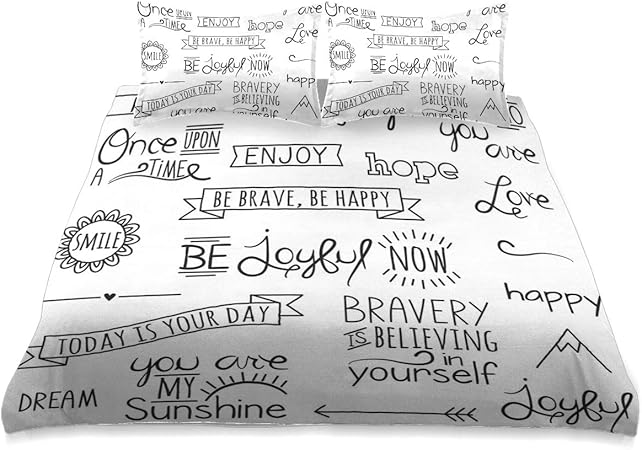 ENJOY
hope
Love
BE BRAVE, BE HAPPY
SMILE
BE Joyful NOW
happy
TODAY IS YOUR DAY
BRAVERY
IS BELIEVING
in
yourself
you are
ENJOY
hope
Love
BE BRAVE, BE HAPPY
BE Joyful NOW
happy
TODAY IS YOUR DAY
BRAVERY
IS BELIEVING
in
yourself
you are
you
are
Once UPON
A TIME
ENJOY
hope
BE BRAVE, BE HAPPY
Love
SMILE
BE Joyful NOW
happy
TODAY IS YOUR DAY
BRAVERY
IS BELIEVING
in
yourself
you are
MY
Sunshine
DREAM
Joyful